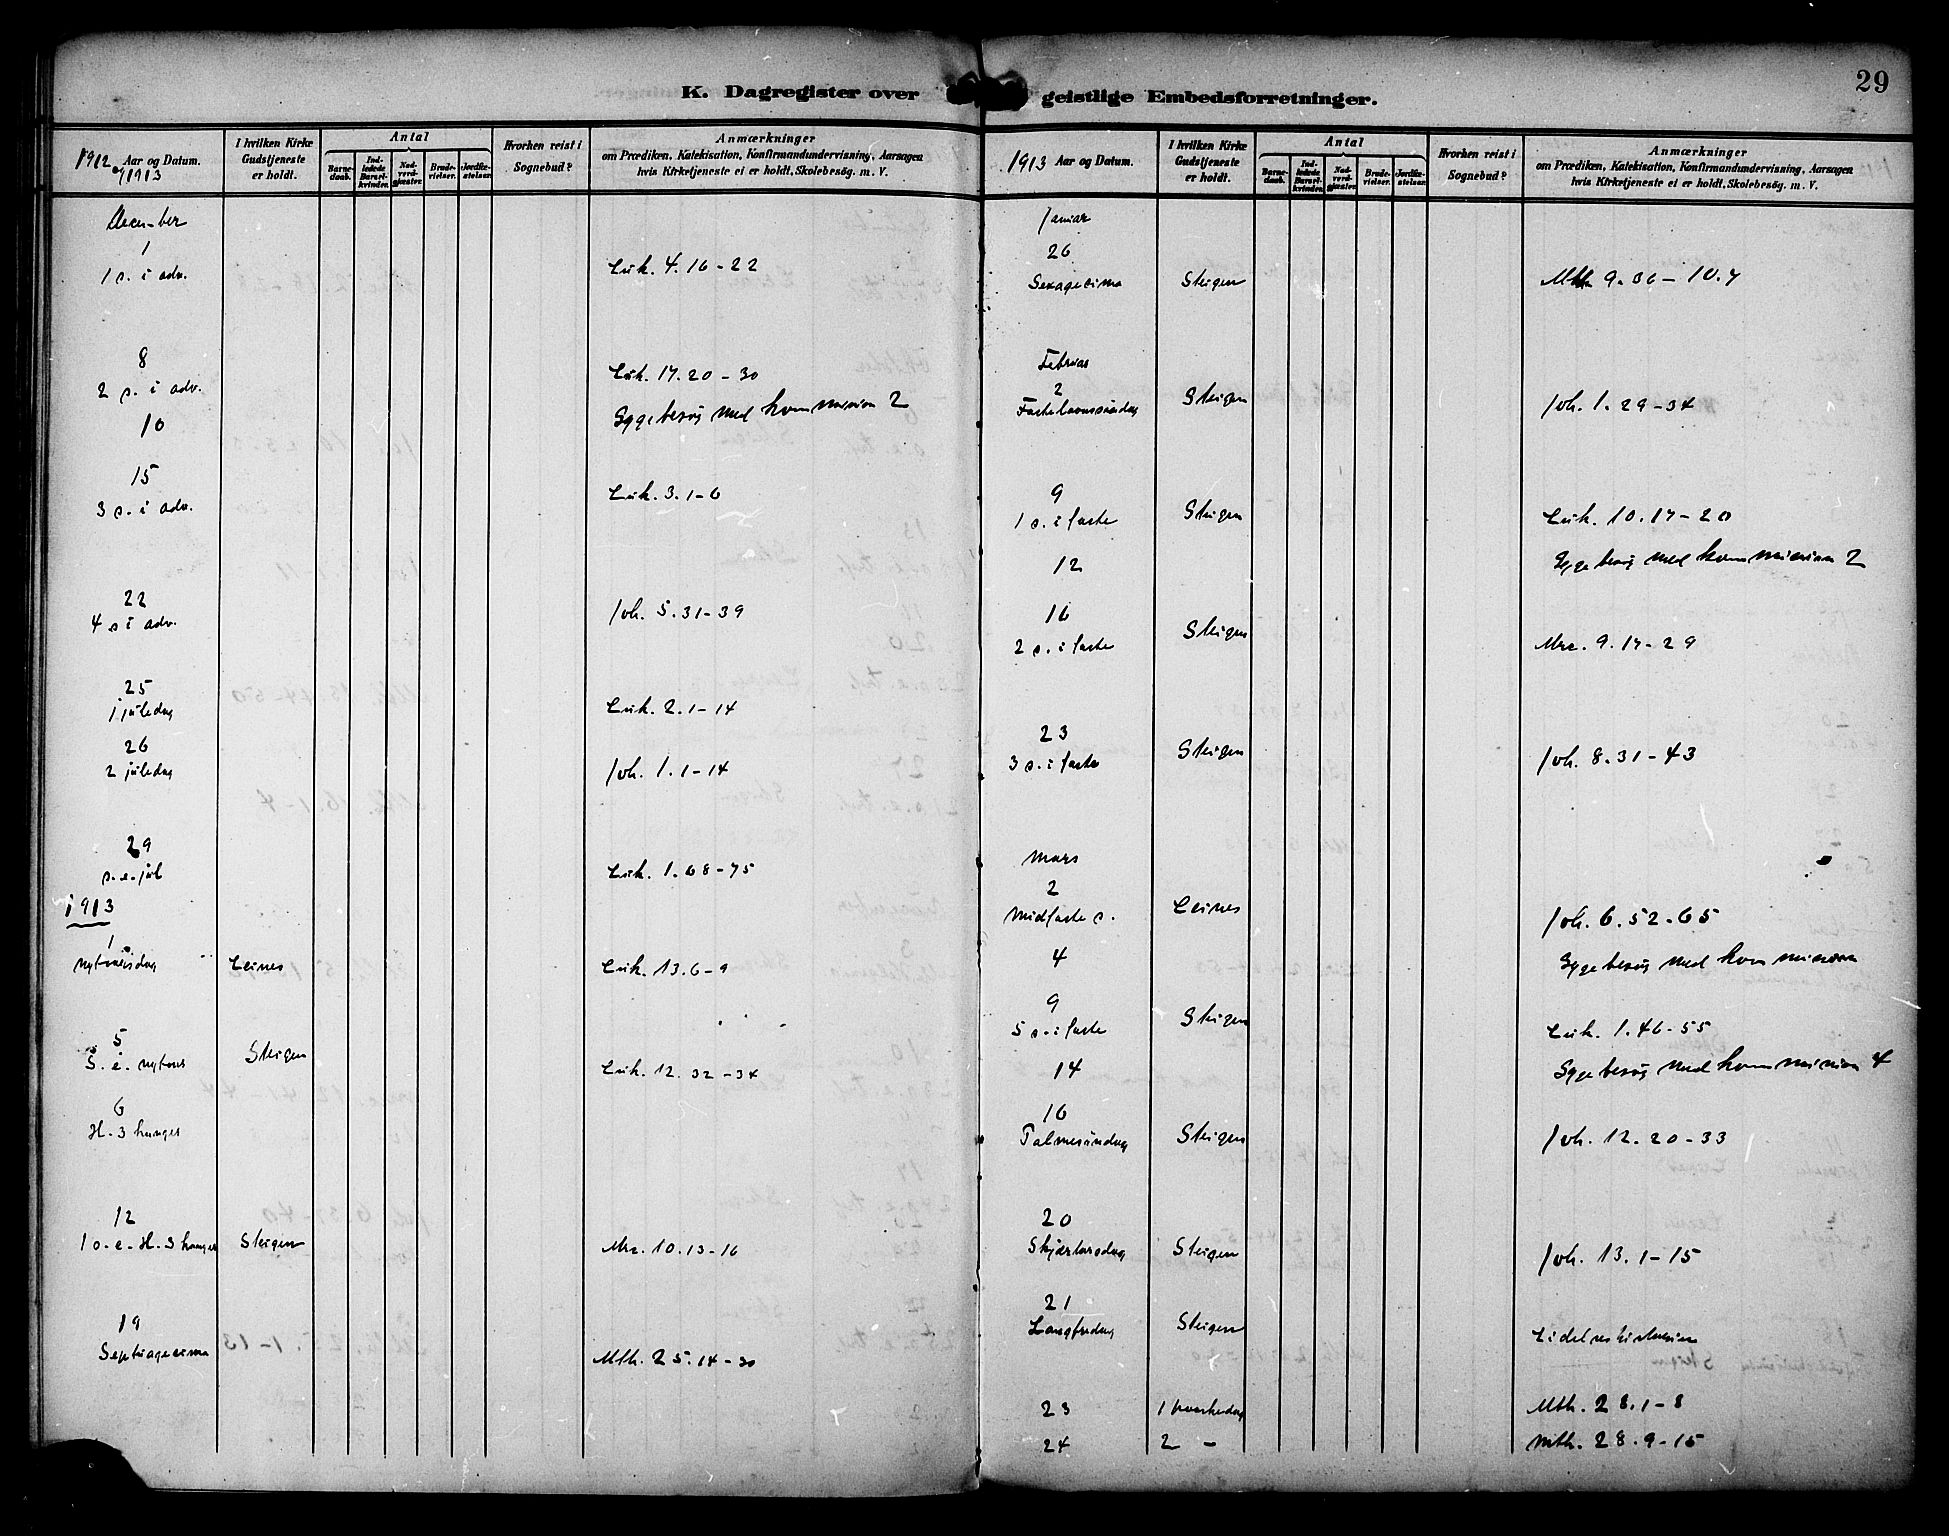 29
K. Dagregister over geistlige Embedsforretninger.
1912 og 1913 Aar og Datum.
I hvilken Kirke Gudstjeneste er holdt.
Antal
Barnedaab.
Indledede Barselkvinder.
Nadverdgjæster.
Brudevielser.
Jordfæstelser.
Hvorhen reist i Sognebud?
Anmærkninger
om Prædiken, Katekisation, Konfirmandundervisning, Aarsagen
hvis Kirketjeneste ei er holdt, Skolebesög. m. V.
December
1
1 s. i adv. Luk. 4.16-22
8
2 s. i adv. Luk. 17.20-30
10 Sygebesøg med kommunion 2
15
3 s. i adv. Luk. 3.1-6
22
4 s i adv. Joh. 5.31-39
25
1 juledag Luk. 2.1-14
26
2 juledag Joh. 1.1-14
29
s.e.jul Luk. 1.68-75
1913
1
nytaarsdag Leines Luk. 13.6-9
5
S. e. nytaar Steigen Luk. 12.32-34
6
H. 3 konger
12
1 s.e. H. 3 konger Steigen Mrc. 10.13-16
19
Septuagesima Mth. 25.14-30
1913 Aar og Datum.
I hvilken Kirke Gudstjeneste er holdt.
Antal
Barnedaab.
Indledede Barselkvinder.
Nadverdgjæster.
Brudevielser.
Jordfæstelser.
Hvorhen reist i Sognebud?
Anmærkninger
om Prædiken, Katekisation, Konfirmandundervisning, Aarsagen
hvis Kirketjeneste ei er holdt, Skolebesög. m. V.
Januar
26
Sexagesima Steigen Mth 9.36-10.7
Februar
2
Fastelavnssøndag Steigen Joh. 1.29-34
9
1 s. i faste Steigen Luk. 10.17-20
12 Sygebesøg med kommunion 2
16
2 s. i faste Steigen Mrc. 9.17-29
23
3 s. i faste Steigen Joh. 8.31-43
Mars
2
Midfaste s. Leines Joh. 6.52-65
4 Sygebesøg med kommunion
9
5 s. i faste Steigen Luk. 1.46-55
14 Sygebesøg med kommunion 4
16
Palmesøndag Steigen Joh. 12.20-33
20
Skjærtorsdag Steigen Joh. 13.1-15
21
Langfredag Steigen Lidelseshistorien
23 1 paaskedag Mth. 28.1-8
24 2 - Mth. 28.9-15